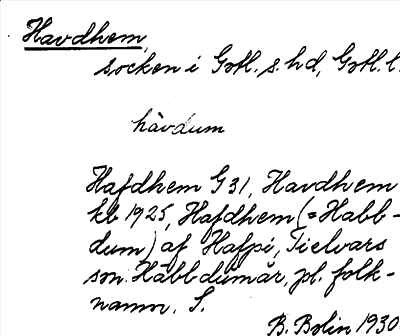 Havdhem,
socken i Gotl. s. hd, Gotl. l.
hàvdum
Hafdhem G 31, Havdhem
kb 1925, Hafdhem (= Habb-
dum) af Hafpi, Tielvars
son. Habbdumår, pl. folk-
namn. S.
B. Bolin 1930